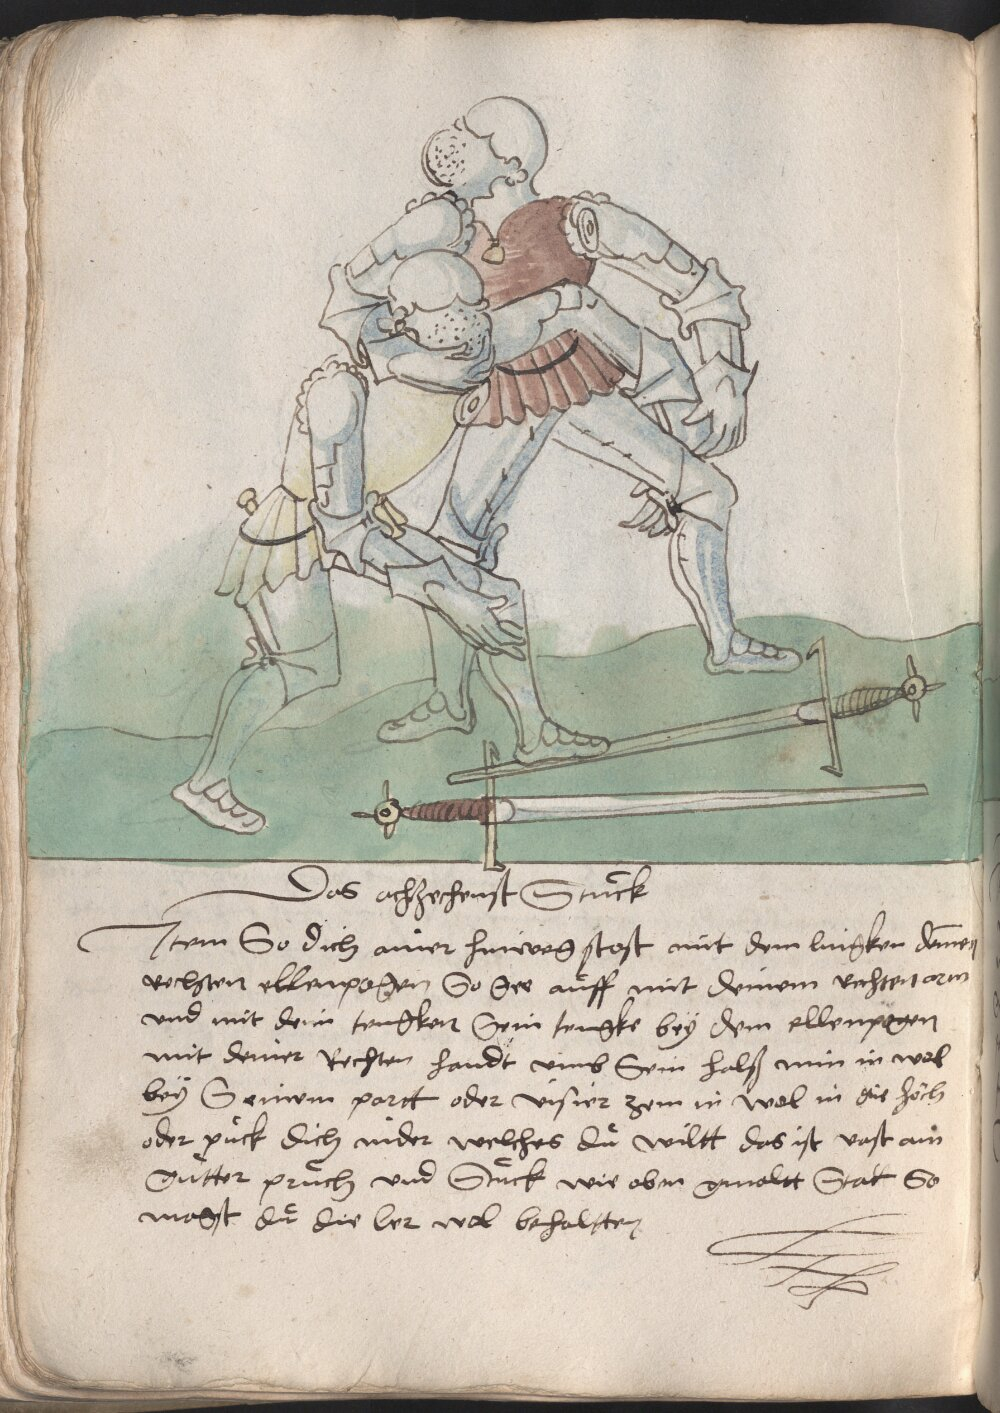 Das achtzechenst Stuck
Item So dich ainer hinweg stost mit dem lingken deinen
rechten ellenpogen So gee auff mit deinem rechten arm
und mit dein lengken Sein lengke bey dem ellenpogen
mit deiner Rechten handt umb Sein halß nim in wol
bey Seinem partt oder visier zem in wol in die höch
oder puck dich nider welches du wiltt das ist vast ain
gutter pruch und Stuck wie oben gmaltt Stat So
magst du die ler wol behaltten